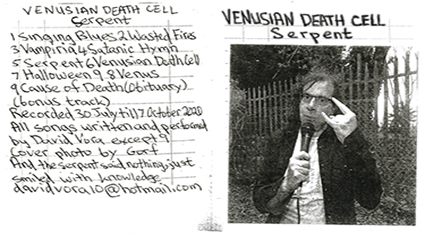 VENUSIAN DEATH CELL
Serpent
1 Singing Blues 2 Wasted Fires
3 Vampiria 4 Satanic Hymn
5 Serpent 6 Venusian Death Cell
7 Halloween 9, 8 Venus
9 Cause of Death (Obituary)
(bonus track)
Recorded 30 July till 7 October 2020
All songs written and performed
by David Vora except 9
Cover photo by Gort
And the serpent said nothing, just
smiled with knowledge
davidvora10@hotmail.com
VENUSIAN DEATH CELL
Serpent